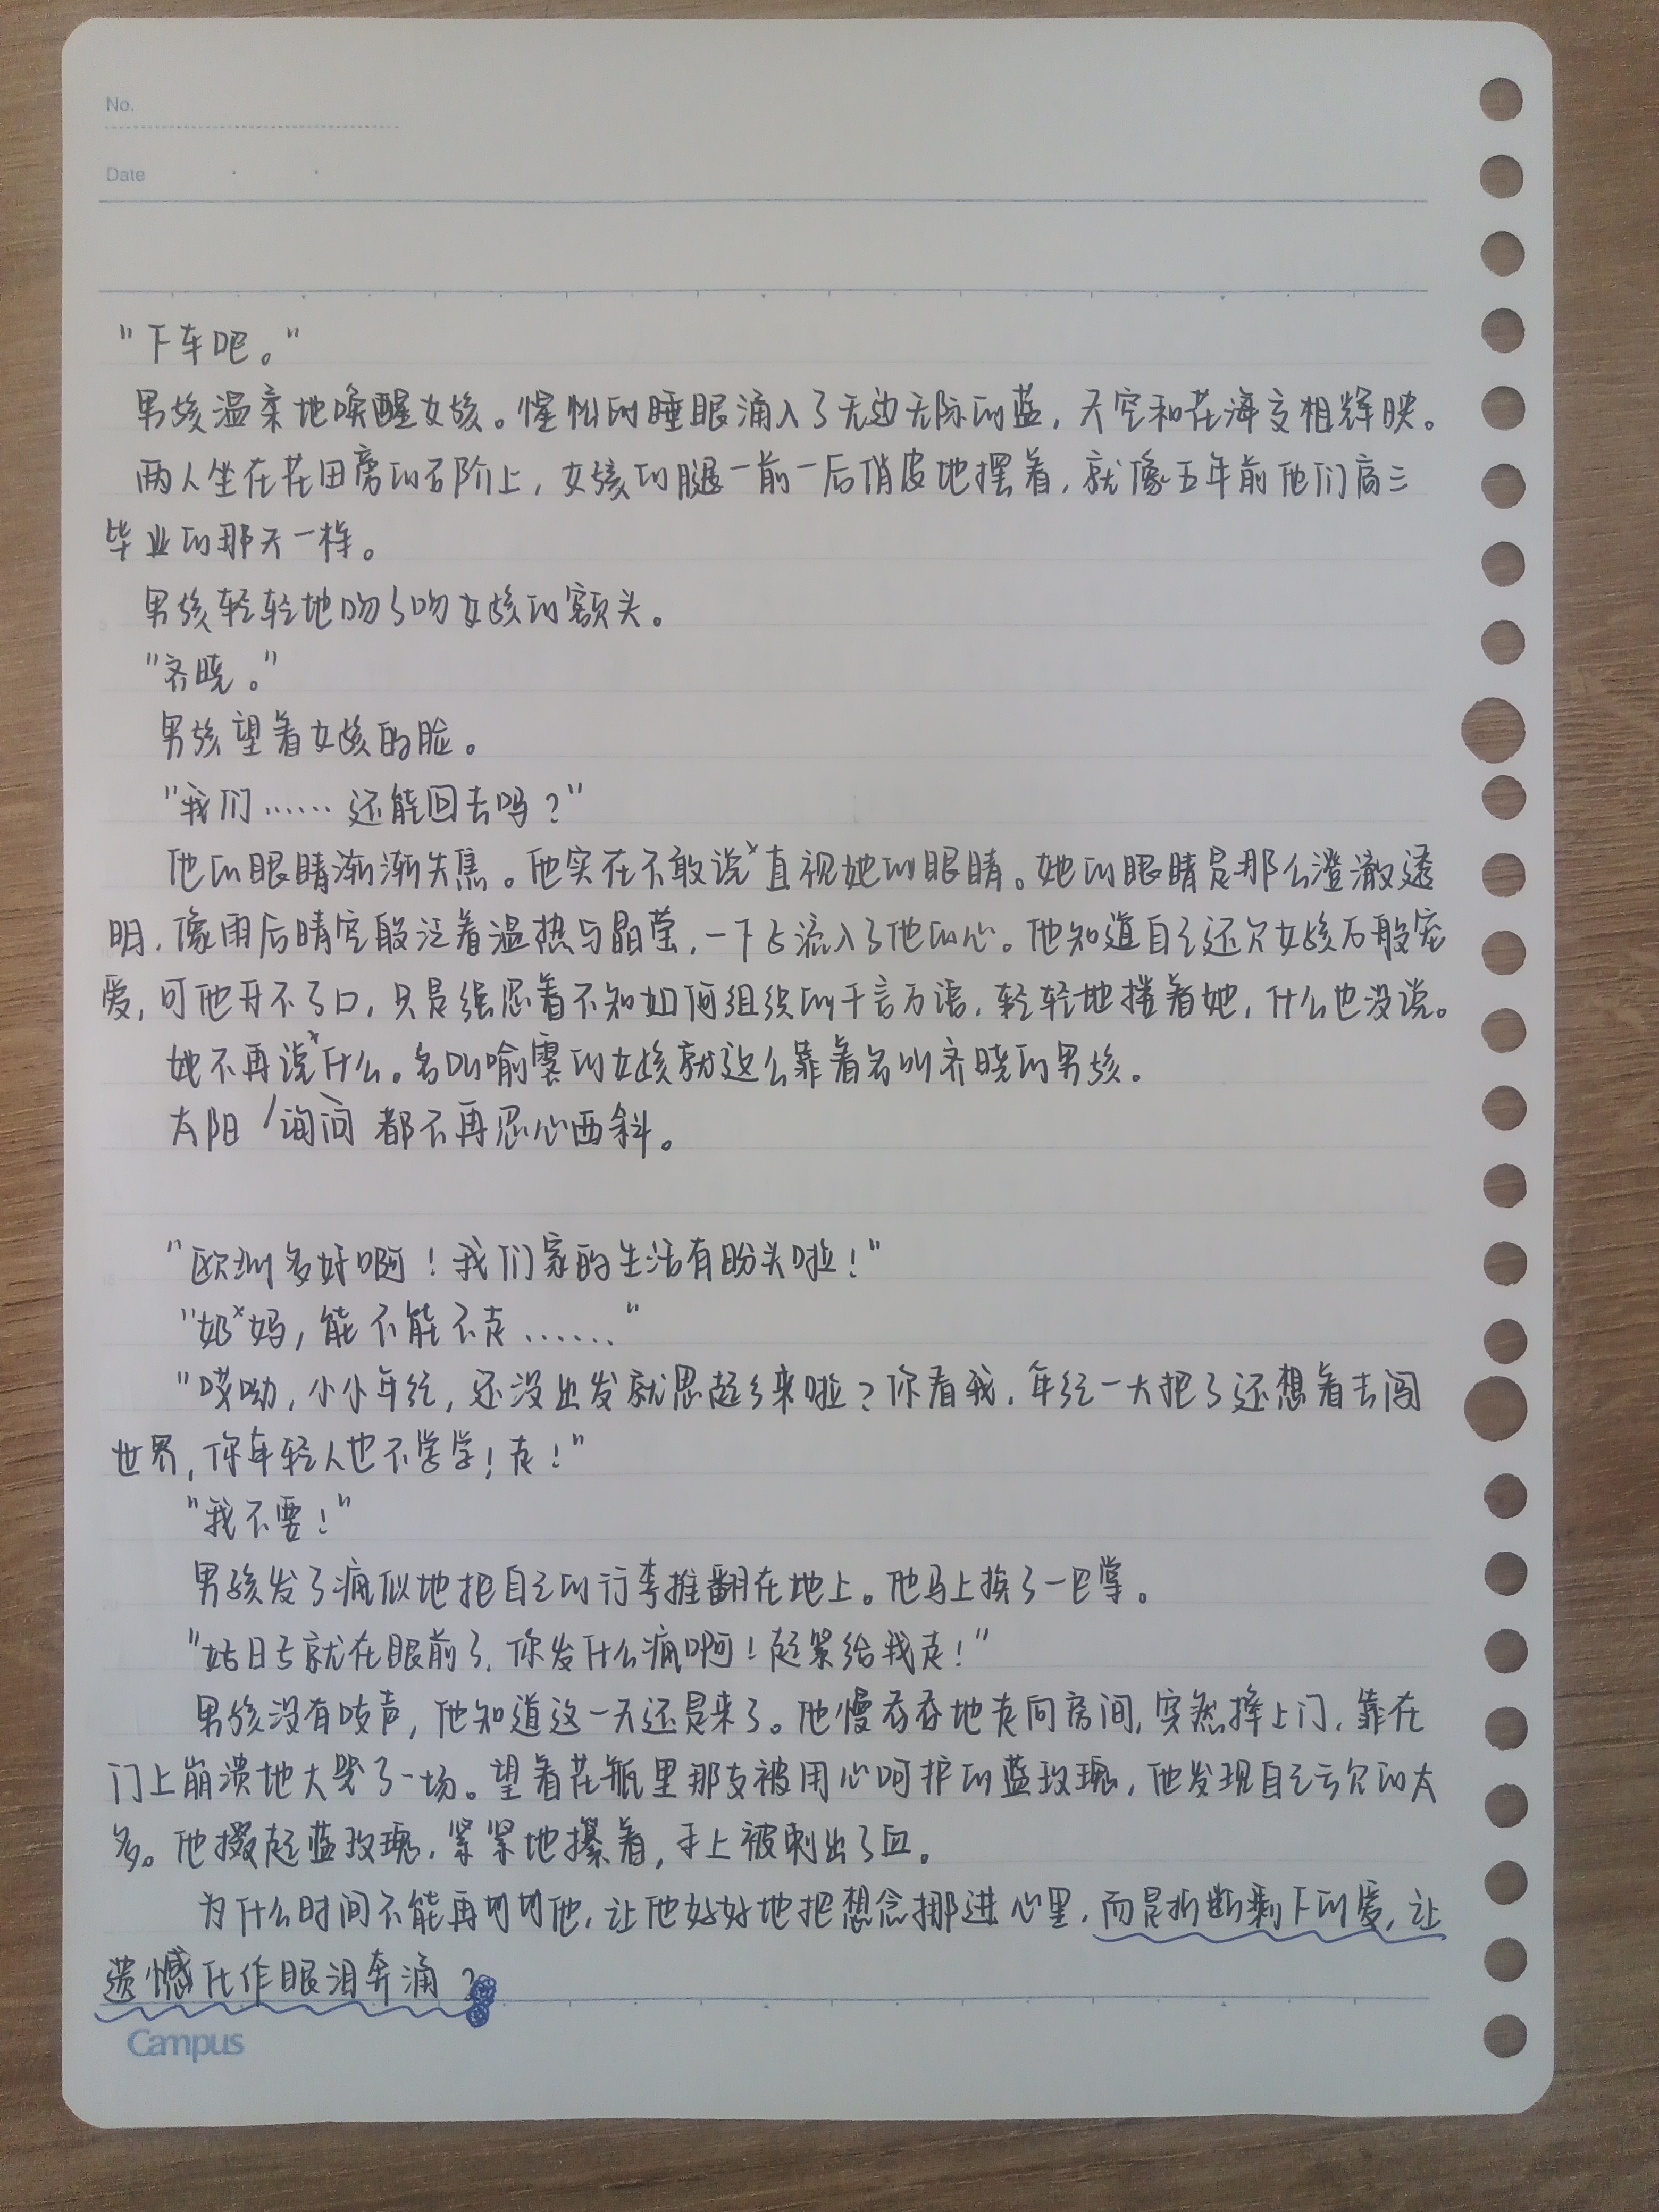 No.
Date
"下车吧。"
男孩温柔地唤醒女孩。惺忪的睡眼涌入了无边无际的蓝，天空和花海交相辉映。
两人坐在花田旁的石阶上，女孩的腿一前一后俏皮地摆着，就像五年前他们高三
毕业的那天一样。
男孩轻轻地吻了吻女孩的额头。
"齐晓。"
男孩望着女孩的脸。
"我们……还能回去吗？"
他的眼睛渐渐失焦。他实在不敢说直视她的眼睛。她的眼睛是那么澄澈透
明，像雨后晴空般泛着温热与晶莹，一下子流入了他的心。他知道自己还欠女孩万般宠
爱，可他开不了口，只是强忍着不知如何组织的千言万语，轻轻地搂着她，什么也没说。
她不再说什么。名叫喻霁的女孩就这么靠着名叫齐晓的男孩。
太阳 询问 都不再忍心西斜。
"欧洲多好啊！我们家的生活有盼头啦！"
"奶妈，能不能不走……"
"哎呦，小小年纪，还没出发就思起乡来啦？你看我，年纪一大把了还想着去闯
世界，你年轻人也不学学！走！"
"我不要！"
男孩发了疯似地把自己的行李推翻在地上。他马上挨了一巴掌。
"好日子就在眼前了，你发什么疯啊！赶紧给我走！"
男孩没有吱声，他知道这一天还是来了。他慢吞吞地走向房间，突然摔上门，靠在
门上崩溃地大哭了一场。望着花瓶里那支被用心呵护的蓝玫瑰，他发现自己亏欠的太
多。他掇起蓝玫瑰，紧紧地攥着，手上被刺出了血。
为什么时间不能再等等他，让他好好地把想念挪进心里，而是折断剩下的爱，让
遗憾化作眼泪奔涌？
Campus